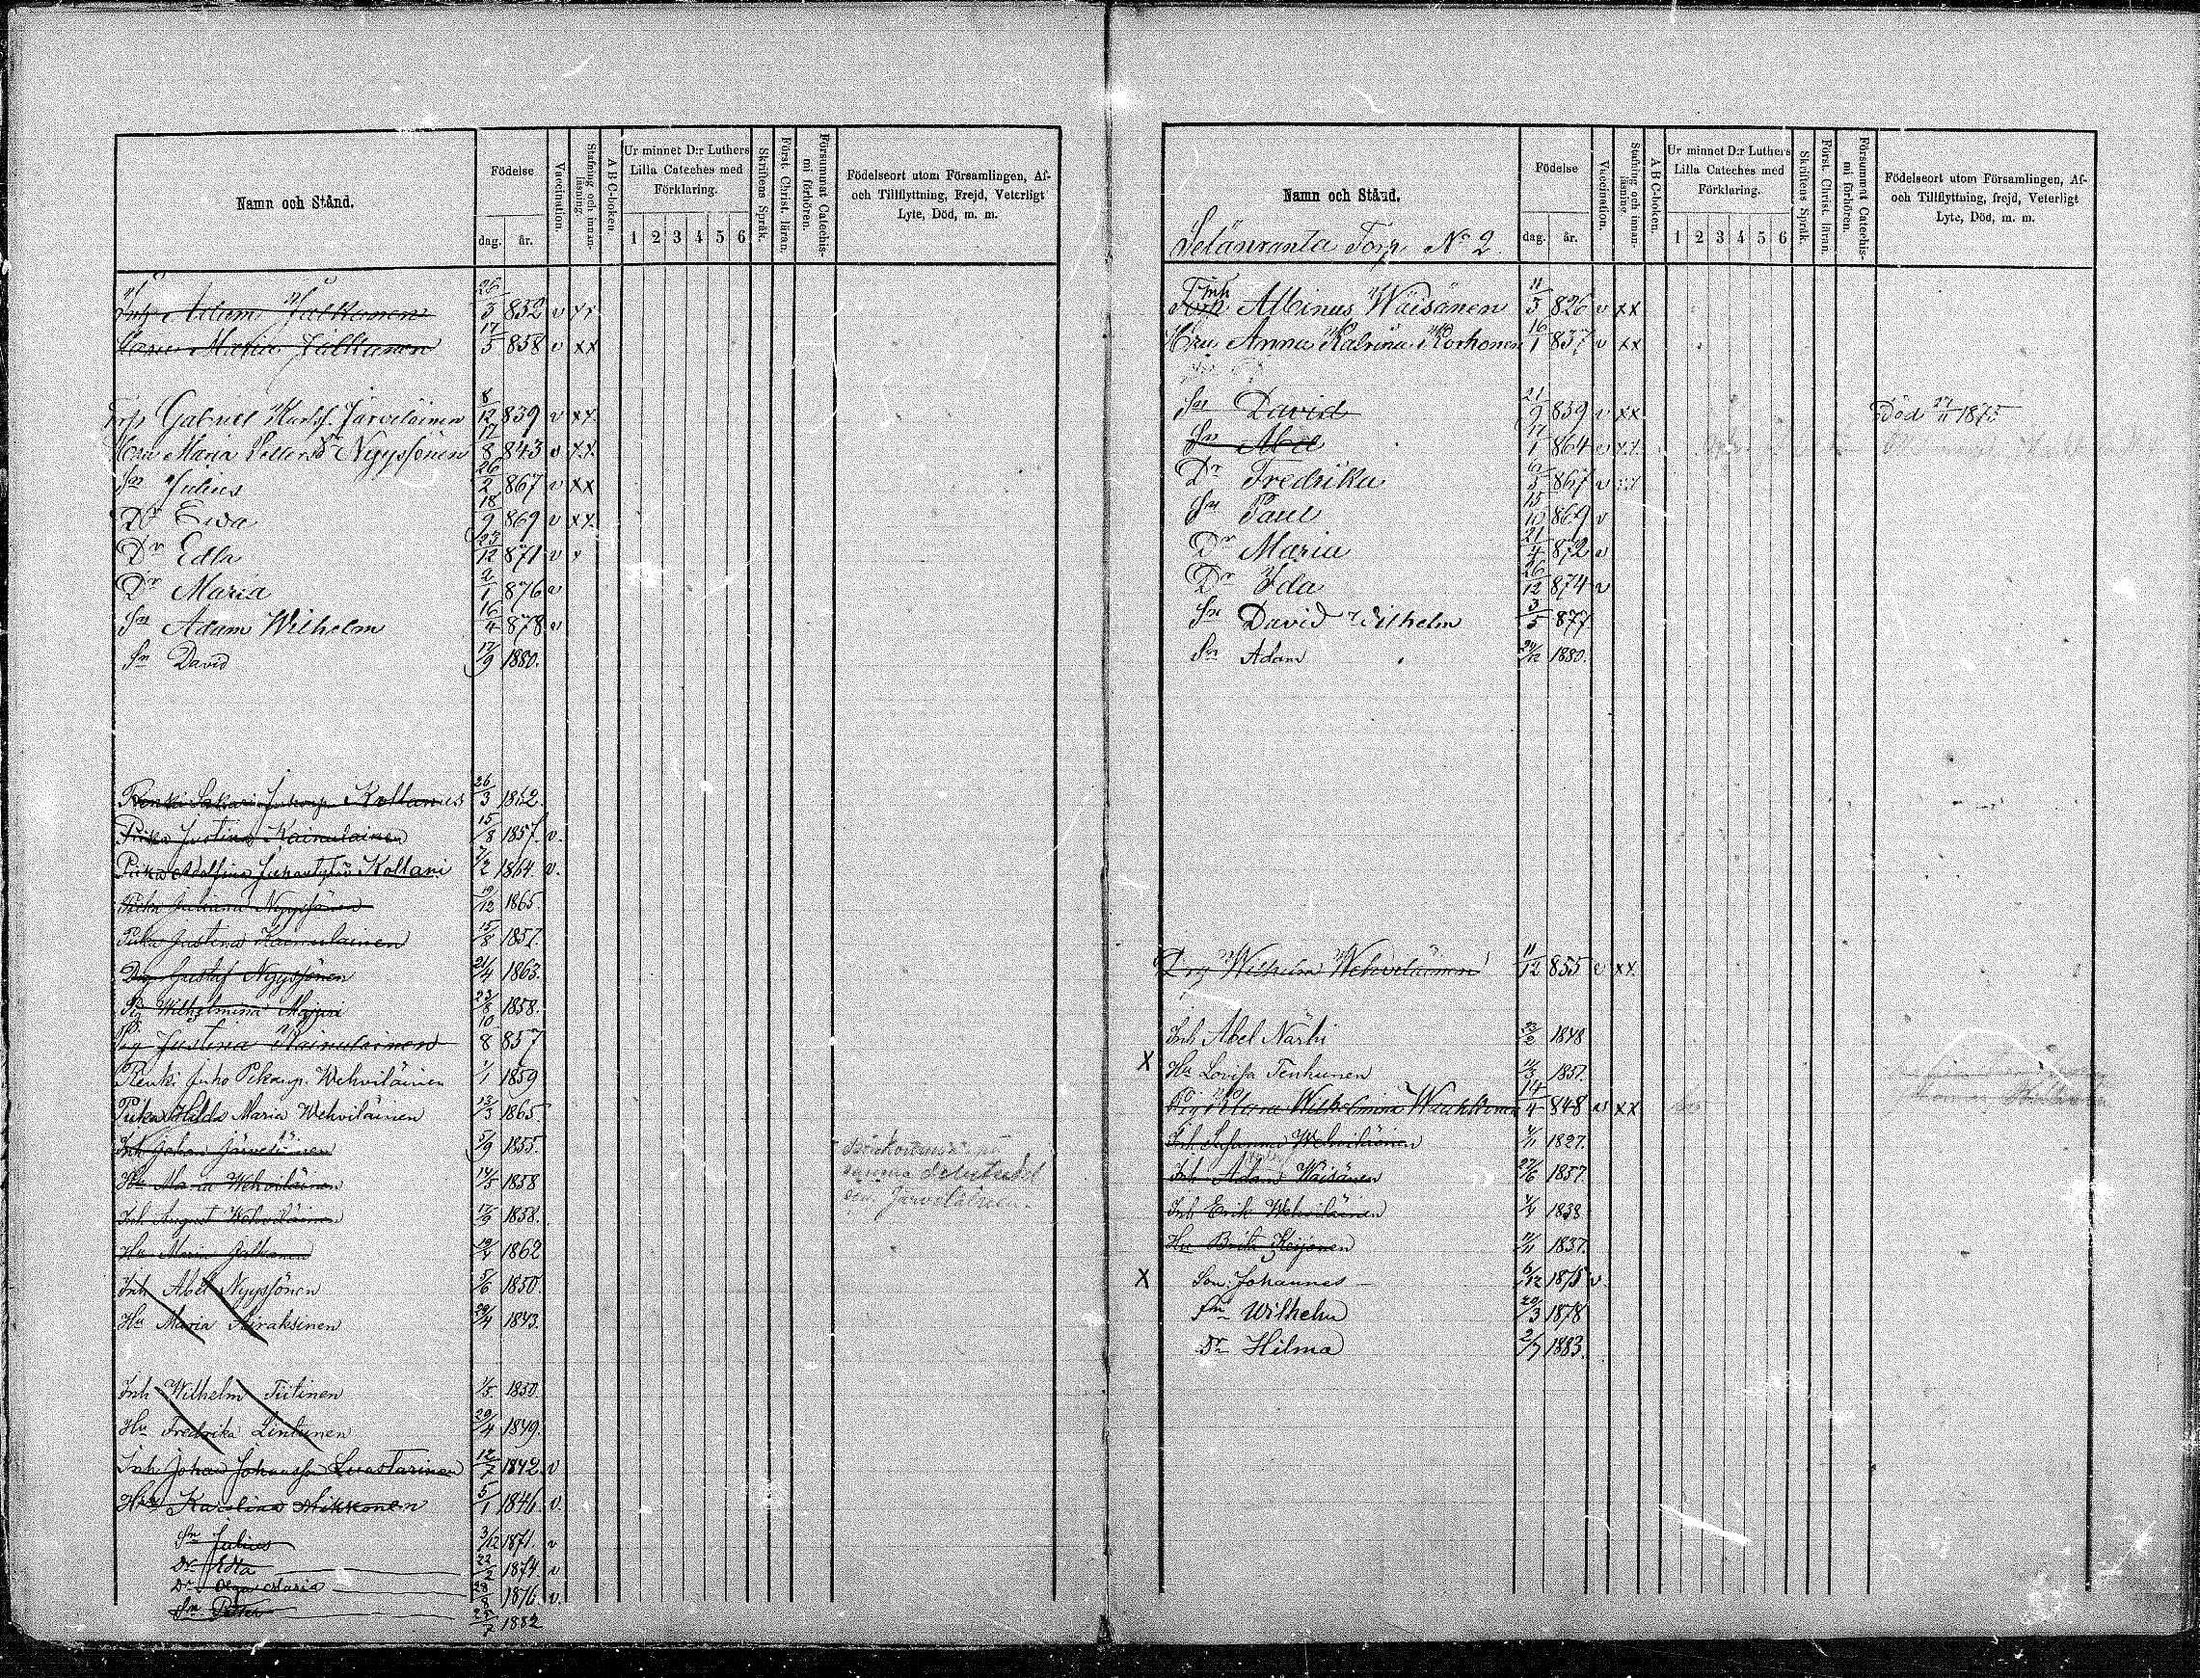 Namn och Stånd.
Födelse
dag.
år.
Vaccination.
Stafning och innanläsning.
A B C-boken
Ur minnet D:r Luthers
Lilla Cateches med
Förklaring.
1 2 3 4 5 6
Skriftens Språk.
Först. Christ. läran.
Försummat Catechismi förhören.
Födelseort utom Församlingen, Af-
och Tillflyttning, Frejd, Veterligt
Lyte, Död, m. m.
Adam Jalkanen 26/3 832 v xx
Maria Jalkanen 17/5 858 v xx
Torp Gabriel Karlsf. Järveläinen 8/12 839 v xx
Hru Maria Petters Dr Nyyssönen 17/8 843 v xx
Sn Julius 26/2 867 v xx
Dr Ewa 18/9 869 v xx
Dr Edla 23/12 871 v x
Dr Maria 2/1 876 v
Sn Adam Wilhelm 16/4 878 v
Sn David 17/9 1880.
Renki Kollanus 26/3 1862.
Piika Justina Kainulainen 15/8 1857. v.
Piika Adolfina Kollani 7/2 1864. v.
Piika Juliana Nyyssönen 19/12 1865
Piika Justina Kainulainen 15/8 1857.
Drg Gustaf Nyyssönen 21/4 1863.
Pig Wilhelmina Majuri 23/8 1858.
Pig Justina Kainulainen 10/8 857
Renki Juho Pekanp. Wehviläinen 1/1 1859
Piika Hilda Maria Wehviläinen 13/3 1865.
Inh Johan Järveläinen 5/9 1855.
Hu Maria Wehviläinen 14/5 1858
Inh August Wehviläinen 17/9 1858.
Hu Maria Jalkanen 19/4 1862
Inh Abel Nyyssönen 5/6 1850
Hu Maria Airaksinen 29/4 1843.
Inh Wilhelm Tiitinen 1/5 1850.
Hu Fredrika Lintunen 29/4 1849.
Inh Johan Johansson Luostarinen 12/7 1842. v
Hru Karolina Mikkonen 5/1 1846. v.
Sn Julius 3/12 1871. v
Dr Edla 22/2 1874. v
Dr Olga Maria 1876. v.
Sn Petter 1882
samma
Järveläinen.
Namn och Stånd.
Selänranta Torp No 2
Födelse
dag.
år.
Vaccination.
Stafning och innanläsning.
A B C-boken.
Ur minnet D:r Luthers
Lilla Cateches med
Förklaring.
1 2 3 4 5 6
Skriftens Språk.
Först. Christ. läran.
Försummat Catechismi förhören.
Födelseort utom Församlingen, Af-
och Tillflyttning, frejd, Veterligt
Lyte, Död, m. m.
Inh
Torp Albinus Wäisänen 11/5 826 v xx
Hru Anna Katrina Korhonen 16/1 837 v xx
Sn David 21/9 859 v xx Död 27/11 1875
Sn Abel 17/1 864 v xx
Dr Fredrika 6/5 867 v xx
Sn Paul 15/10 869 v
Dr Maria 21/4 872 v
Dr Ida 26/12 874 v
Sn David Wilhelm 3/5 877
Sn Adam 24/12 1880.
Drg Wilhelm Wehviläinen 11/12 855 v xx
Inh Abel Närhi 23/2 1848
X Hu Lovisa Tenhunen 1857.
Pig Klara Wilhelmina 14/4 848 v xx
Inh Susanna Wehviläinen 1827.
Inh Adam Wäisänen 27/6 1857.
Inh Erik Wehviläinen 1/4 1838
Hu Brita Keijonen 1837.
X Son: Johannes 6/12 1875 v
Sn Wilhelm 20/3 1878
Dr Hilma 2/7 1883.